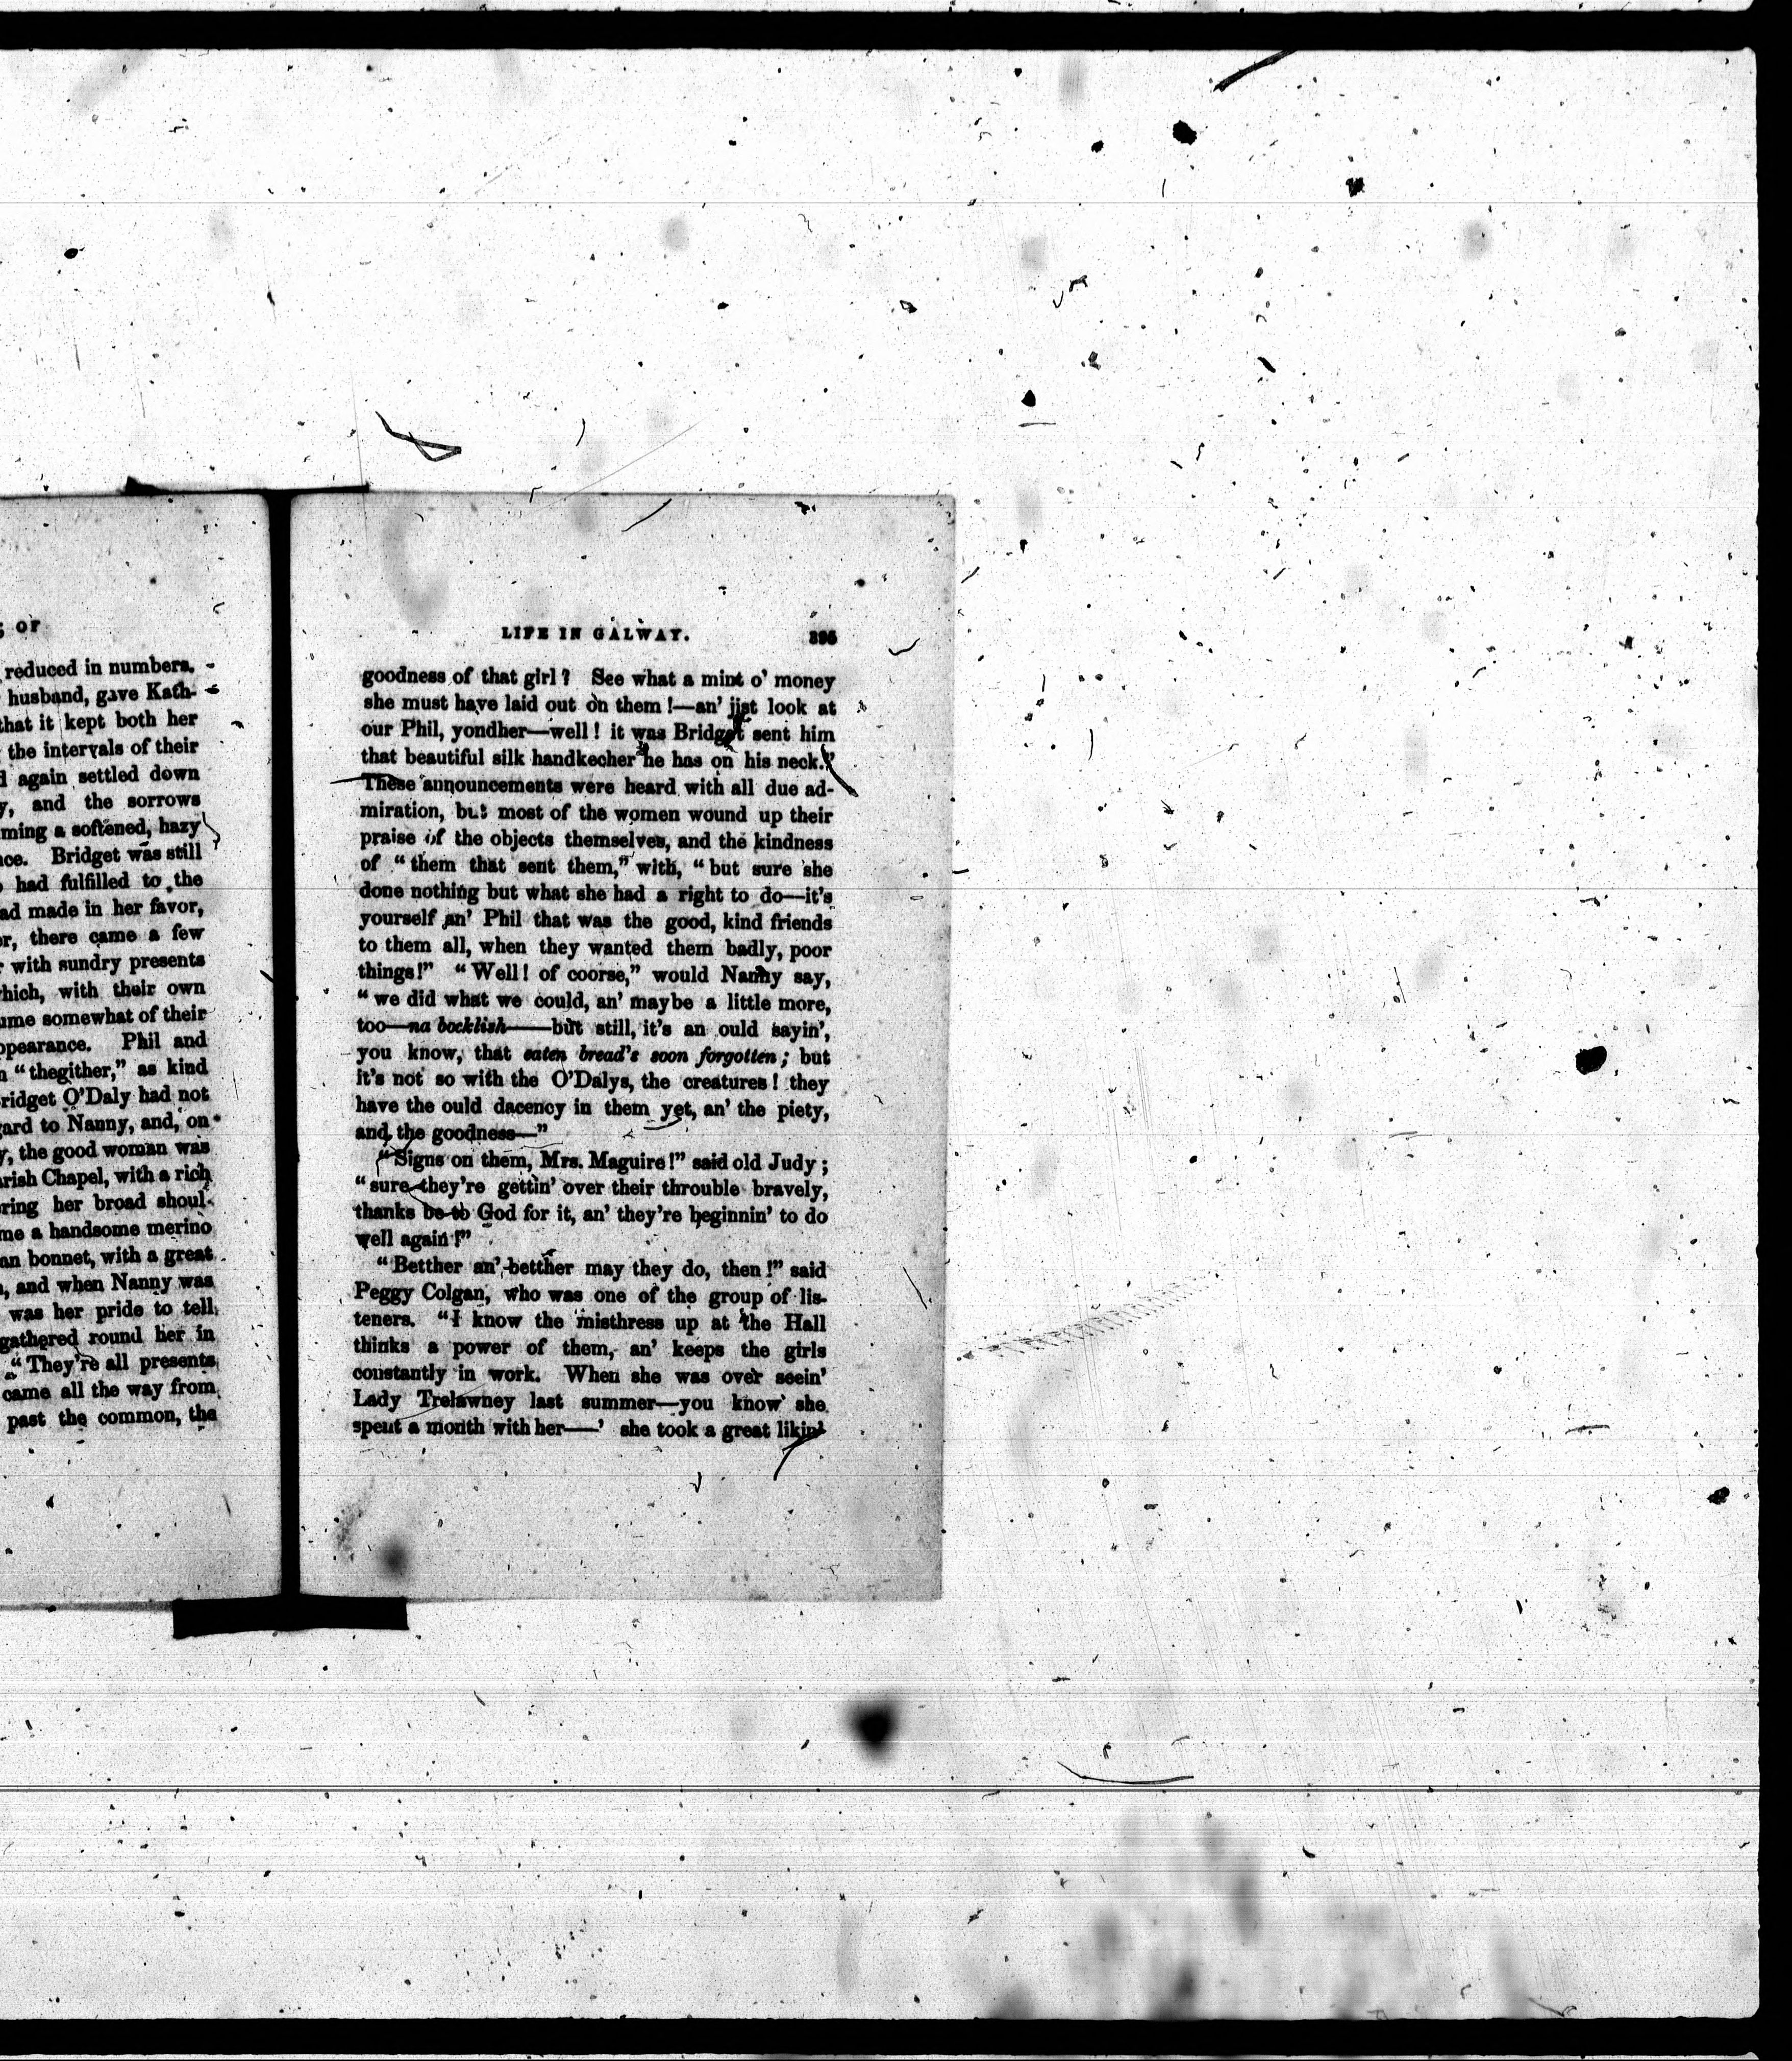 ; OF
reduced in numbers.
husband, gave Kath-
that it kept both her
the intervals of their
again settled down
and the sorrows
ming a softened, hazy
Bridget was still
had fulfilled to the
ad made in her favor,
there came a few
with sundry presents
hich, with their own
ume somewhat of their
ppearance. Phil and
"thegither," as kind
ridget O'Daly had not
gard to Nanny, and, on
the good woman was
rish Chapel, with a rich
ring her broad shoul-
me a handsome merino
an bonnet, with a great
and when Nanny was
was her pride to tell
gathered round her in
"They're all presents
came all the way from
past the common, the
LIFE IN GALWAY. 395
goodness of that girl? See what a mint o' money
she must have laid out on them!—an' jist look at
our Phil, yondher—well! it was Bridget sent him
that beautiful silk handkecher he has on his neck."
These announcements were heard with all due ad-
miration, but most of the women wound up their
praise of the objects themselves, and the kindness
of "them that sent them," with, "but sure she
done nothing but what she had a right to do—it's
yourself an' Phil that was the good, kind friends
to them all, when they wanted them badly, poor
things!" "Well! of coorse," would Nanny say,
"we did what we could, an' maybe a little more,
too—na bocklish——but still, it's an ould sayin',
you know, that eaten bread's soon forgotten; but
it's not so with the O'Dalys, the creatures! they
have the ould dacency in them yet, an' the piety,
and the goodness—"
"Signs on them, Mrs. Maguire!" said old Judy;
"sure they're gettin' over their throuble bravely,
thanks be to God for it, an' they're beginnin' to do
well again!"
"Betther an' betther may they do, then!" said
Peggy Colgan, who was one of the group of lis-
teners. "I know the misthress up at the Hall
thinks a power of them, an' keeps the girls
constantly in work. When she was over seein'
Lady Trelawney last summer—you know she
spent a month with her——' she took a great likin'